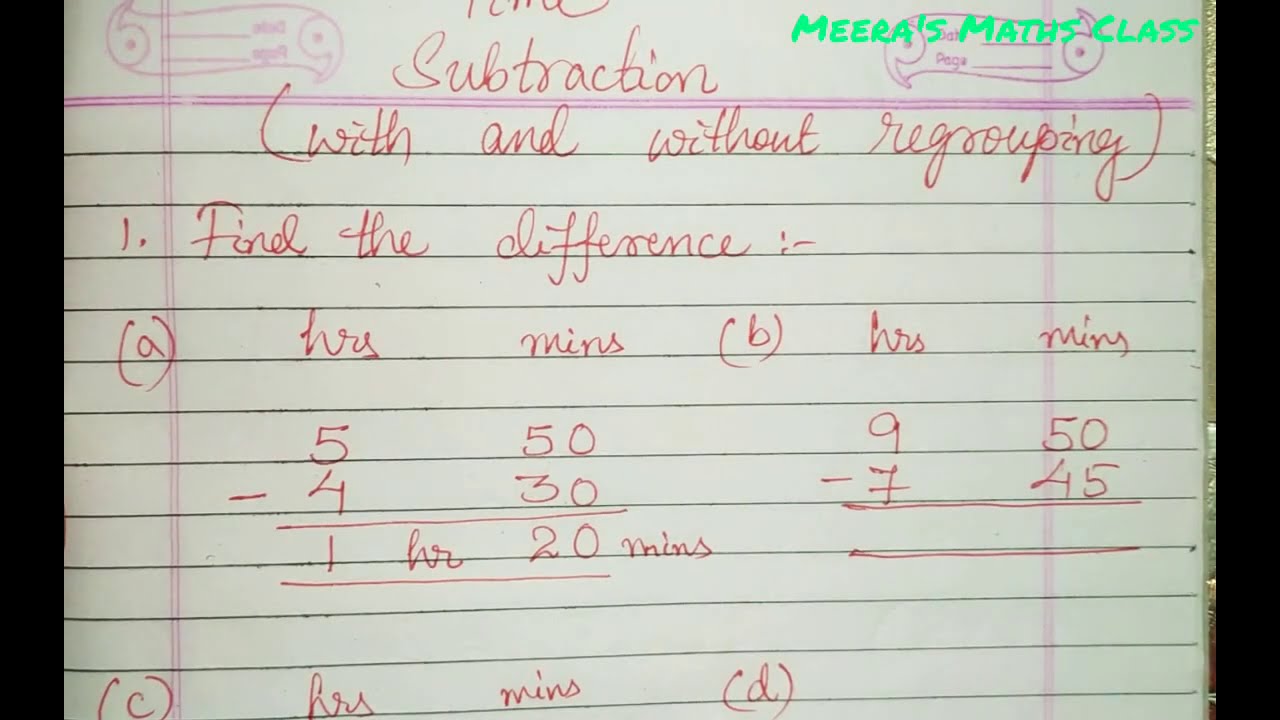 Time
Meera's Maths Class
Subtraction
(with and without regrouping)
1. Find the difference :-
(a) hrs mins (b) hrs mins
5 50 9 50
- 4 30 - 7 45
1 hr 20 mins
(c) hrs mins (d)
Page